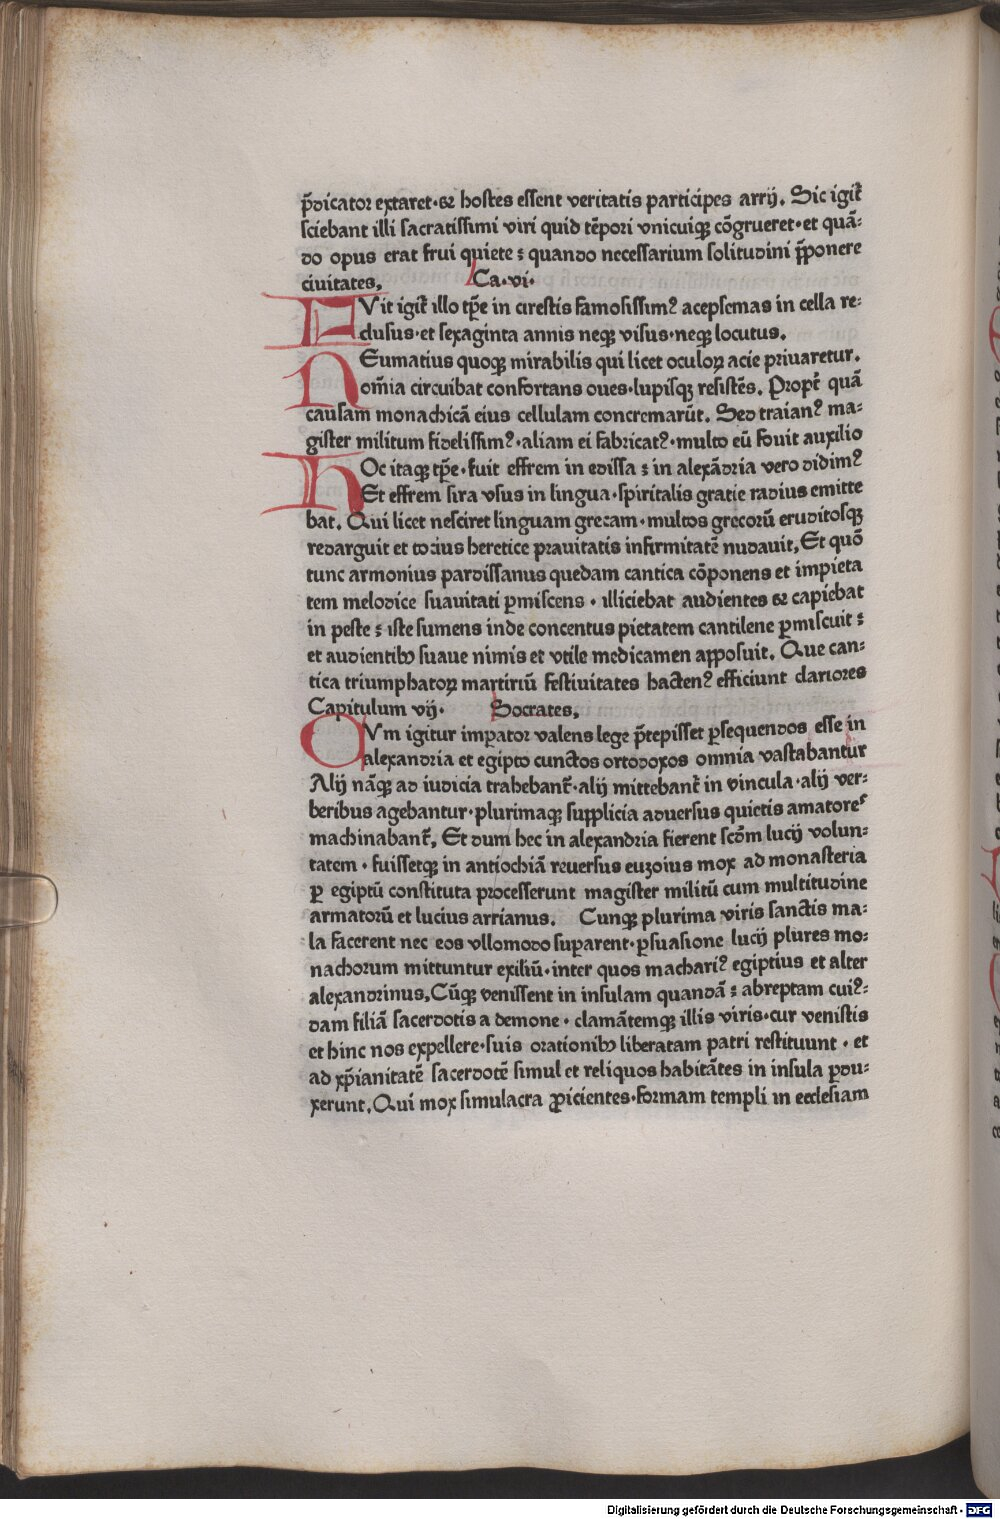 p̄dicator extaret·⁊ hostes essent veritatis participes arrij. Sic igit᷑
sciebant illi sacratissimi viri quid tēpori vnicuiqꝫ cōgrueret·et quā-
do opus erat frui quiete : quando necessarium solitudini p̄ponere
ciuitates. Ca·vi·
FVit igit᷑ illo tp̄e in cirestis famosissimꝰ acepsemas in cella re-
clusus·et sexaginta annis neqꝫ visus·neqꝫ locutus.
NEumatius quoqꝫ mirabilis qui licet oculoꝝ acie priuaretur.
om̄ia circuibat confortans oues·lupisqꝫ resistēs. Propt᷑ quā
causam monachicā eius cellulam concremarūt. Sed traianꝰ ma-
gister militum fidelissimꝰ·aliam ei fabricatꝰ·multo eū fouit auxilio
HOc itaqꝫ tp̄e·fuit effrem in edissa : in alexādria vero didimꝰ
Et effrem sira vsus in lingua·spiritalis gratie radius emitte
bat. Qui licet nesciret linguam grecam·multos grecorū eruditosqꝫ
redarguit et tocius heretice prauitatis infirmitatē nudauit. Et quō
tunc armonius pardissanus quedam cantica cōponens et impieta
tem melodice suauitati ꝑmiscens · illiciebat audientes ⁊ capiebat
in peste : iste sumens inde concentus pietatem cantilene ꝑmiscuit :
et audientibꝰ suaue nimis et vtile medicamen apposuit. Que can-
tica triumphatoꝝ martiriū festiuitates hactenꝰ efficiunt clariores
Capitulum vij· Socrates.
CVm igitur imꝑator valens lege p̄cepisset ꝑsequendos esse in
alexandria et egipto cunctos ortodoxos omnia vastabantur
Alij nāqꝫ ad iudicia trahebant᷑·alij mittebant᷑ in vincula·alij ver-
beribus agebantur·plurimaqꝫ supplicia aduersus quietis amatores
machinabant᷑. Et dum hec in alexandria fierent scd̄m lucij volun-
tatem · fuissetqꝫ in antiochiā reuersus euzoius mox ad monasteria
ꝑ egiptū constituta processerunt magister militū cum multitudine
armatorū et lucius arrianus. Cunqꝫ plurima viris sanctis ma-
la facerent nec eos vllomodo suꝑarent·ꝑsuasione lucij plures mo-
nachorum mittuntur exiliū·inter quos machariꝰ egiptius et alter
alexandrinus. Cūqꝫ venissent in insulam quandā : abreptam cuiꝰ-
dam filiā sacerdotis a demone · clamātemqꝫ illis viris·cur venistis
et hinc nos expellere·suis orationibꝰ liberatam patri restituunt · et
ad xp̄ianitatē sacerdotē simul et reliquos habitātes in insula ꝑdu-
xerunt. Qui mox simulacra ꝓicientes·formam templi in ecclesiam
Digitalisierung gefördert durch die Deutsche Forschungsgemeinschaft - DFG